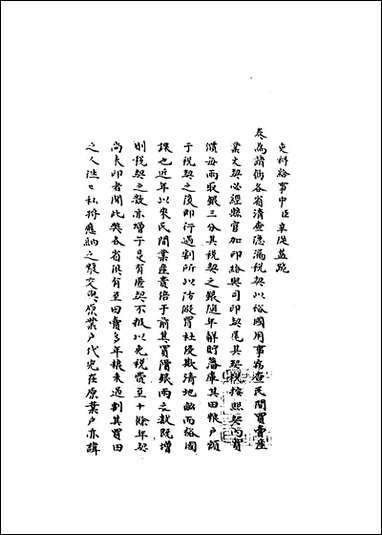 吏科給事中臣卓從益跪
奏為請飭各省清查隱漏稅契以裕國用事竊查民間買賣產
業文契必經縣官加印給與司印契尾其契按照契內買
價每兩取銀三分其稅契之銀隨年解貯藩庫其田糧戶額
于稅契之後即行過割所以防詭冒杜侵欺清地畝而裕國
課也近年以來民間業產貴倍于前其買價銀兩之數既增
則稅契之數亦增于是有匿契不報以免稅費至十餘年契
尚未印者聞此弊各省俱有至田賣多年糧未過割其買田
之人往往私將應納之糧交與原業戶代完在原業戶亦諱